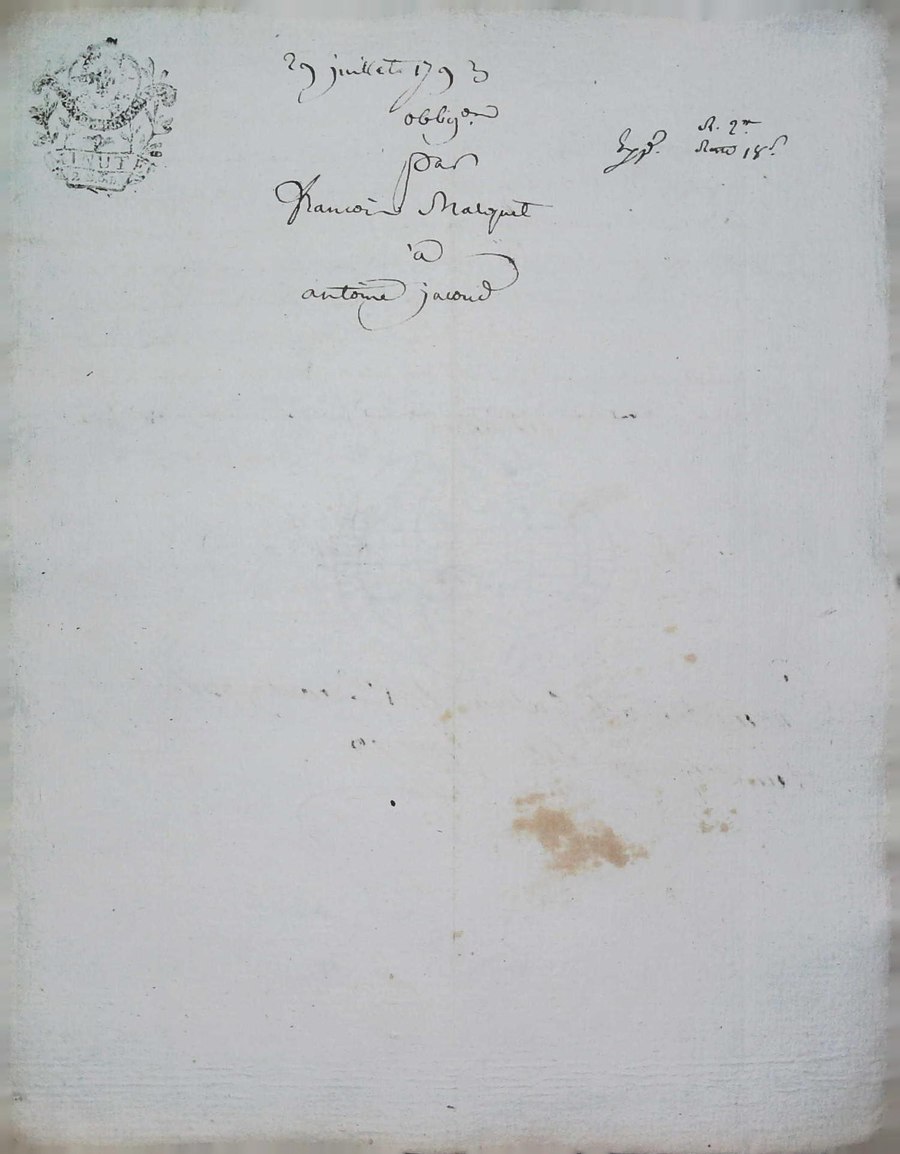 MINUTE
29 juillet 1793
obbligon
par
francois Marquet
à
antoine jacoud
Expé.
R. 2
18